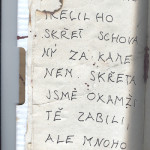 SKŘET SCHOVA
NÝ ZA KAME
NEM. SKŘETA
JSME OKAMŽI
TĚ ZABILI
ALE MNOHO